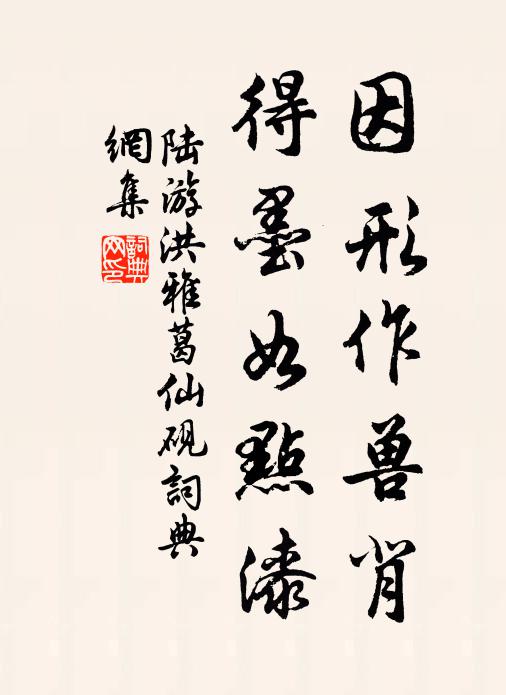 因形作兽肖
得墨如點漆
陆游洪雅葛仙砚詞典
網集
詞典网印